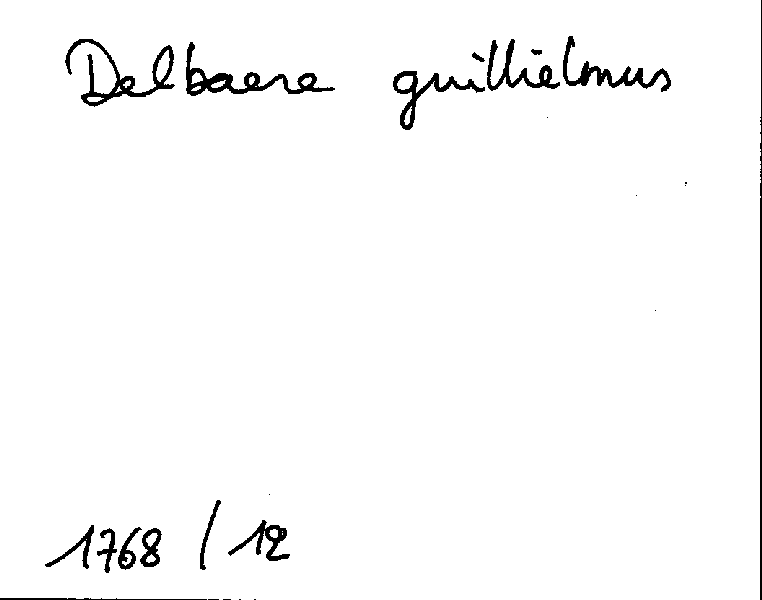 Delbaere guillielmus
1768 / 12